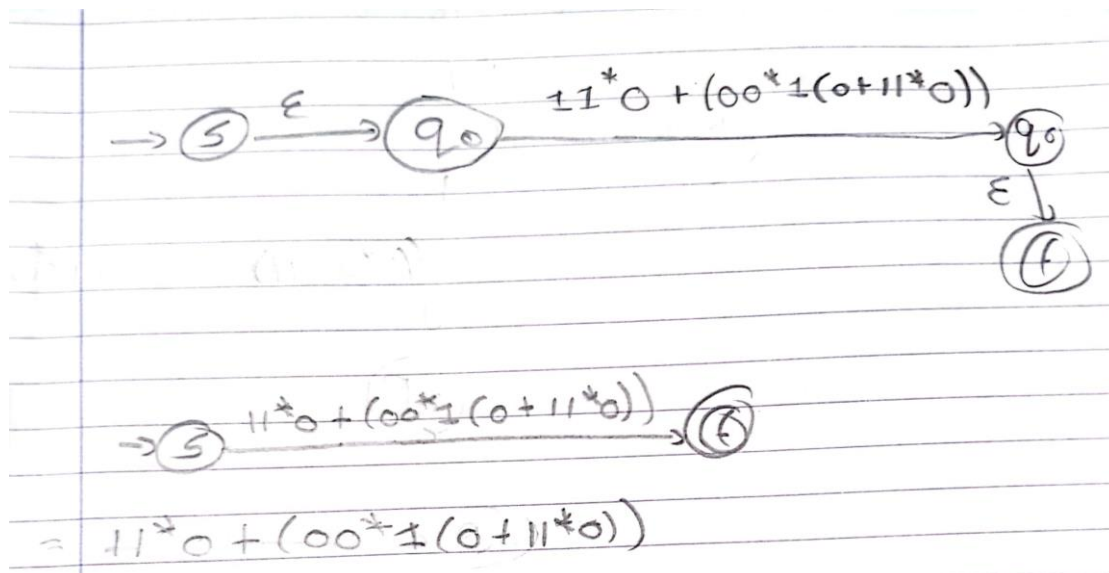 ε 11*0 + (00*1(0+11*0))
→ S → q0 → q0
ε ↓
f
11*0 + (00*1(0+11*0))
→ S → f
= 11*0 + (00*1(0+11*0))